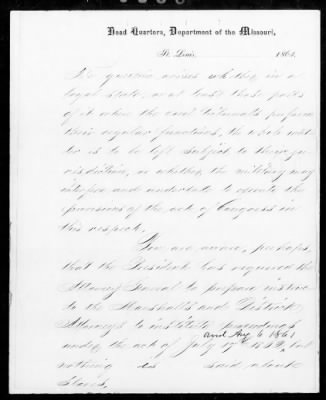 Head Quarters, Department of the Missouri,
St. Louis, 1861.
The question arises whether in a
loyal state, or at least those parts
of it where the civil tribunals perform
their regular functions, the whole mat-
ter is to be left subject to their ju-
risdiction, or whether the military may
interfere and undertake to execute the
provisions of the act of Congress in
this respect.
You are aware, perhaps,
that the President has required the
Attorney General to prepare instruc
to the Marshalls and District
Attorneys to institute proceedings
and Aug 6 1861
under the act of July 17" 1862, but
nothing is said about
slaves,